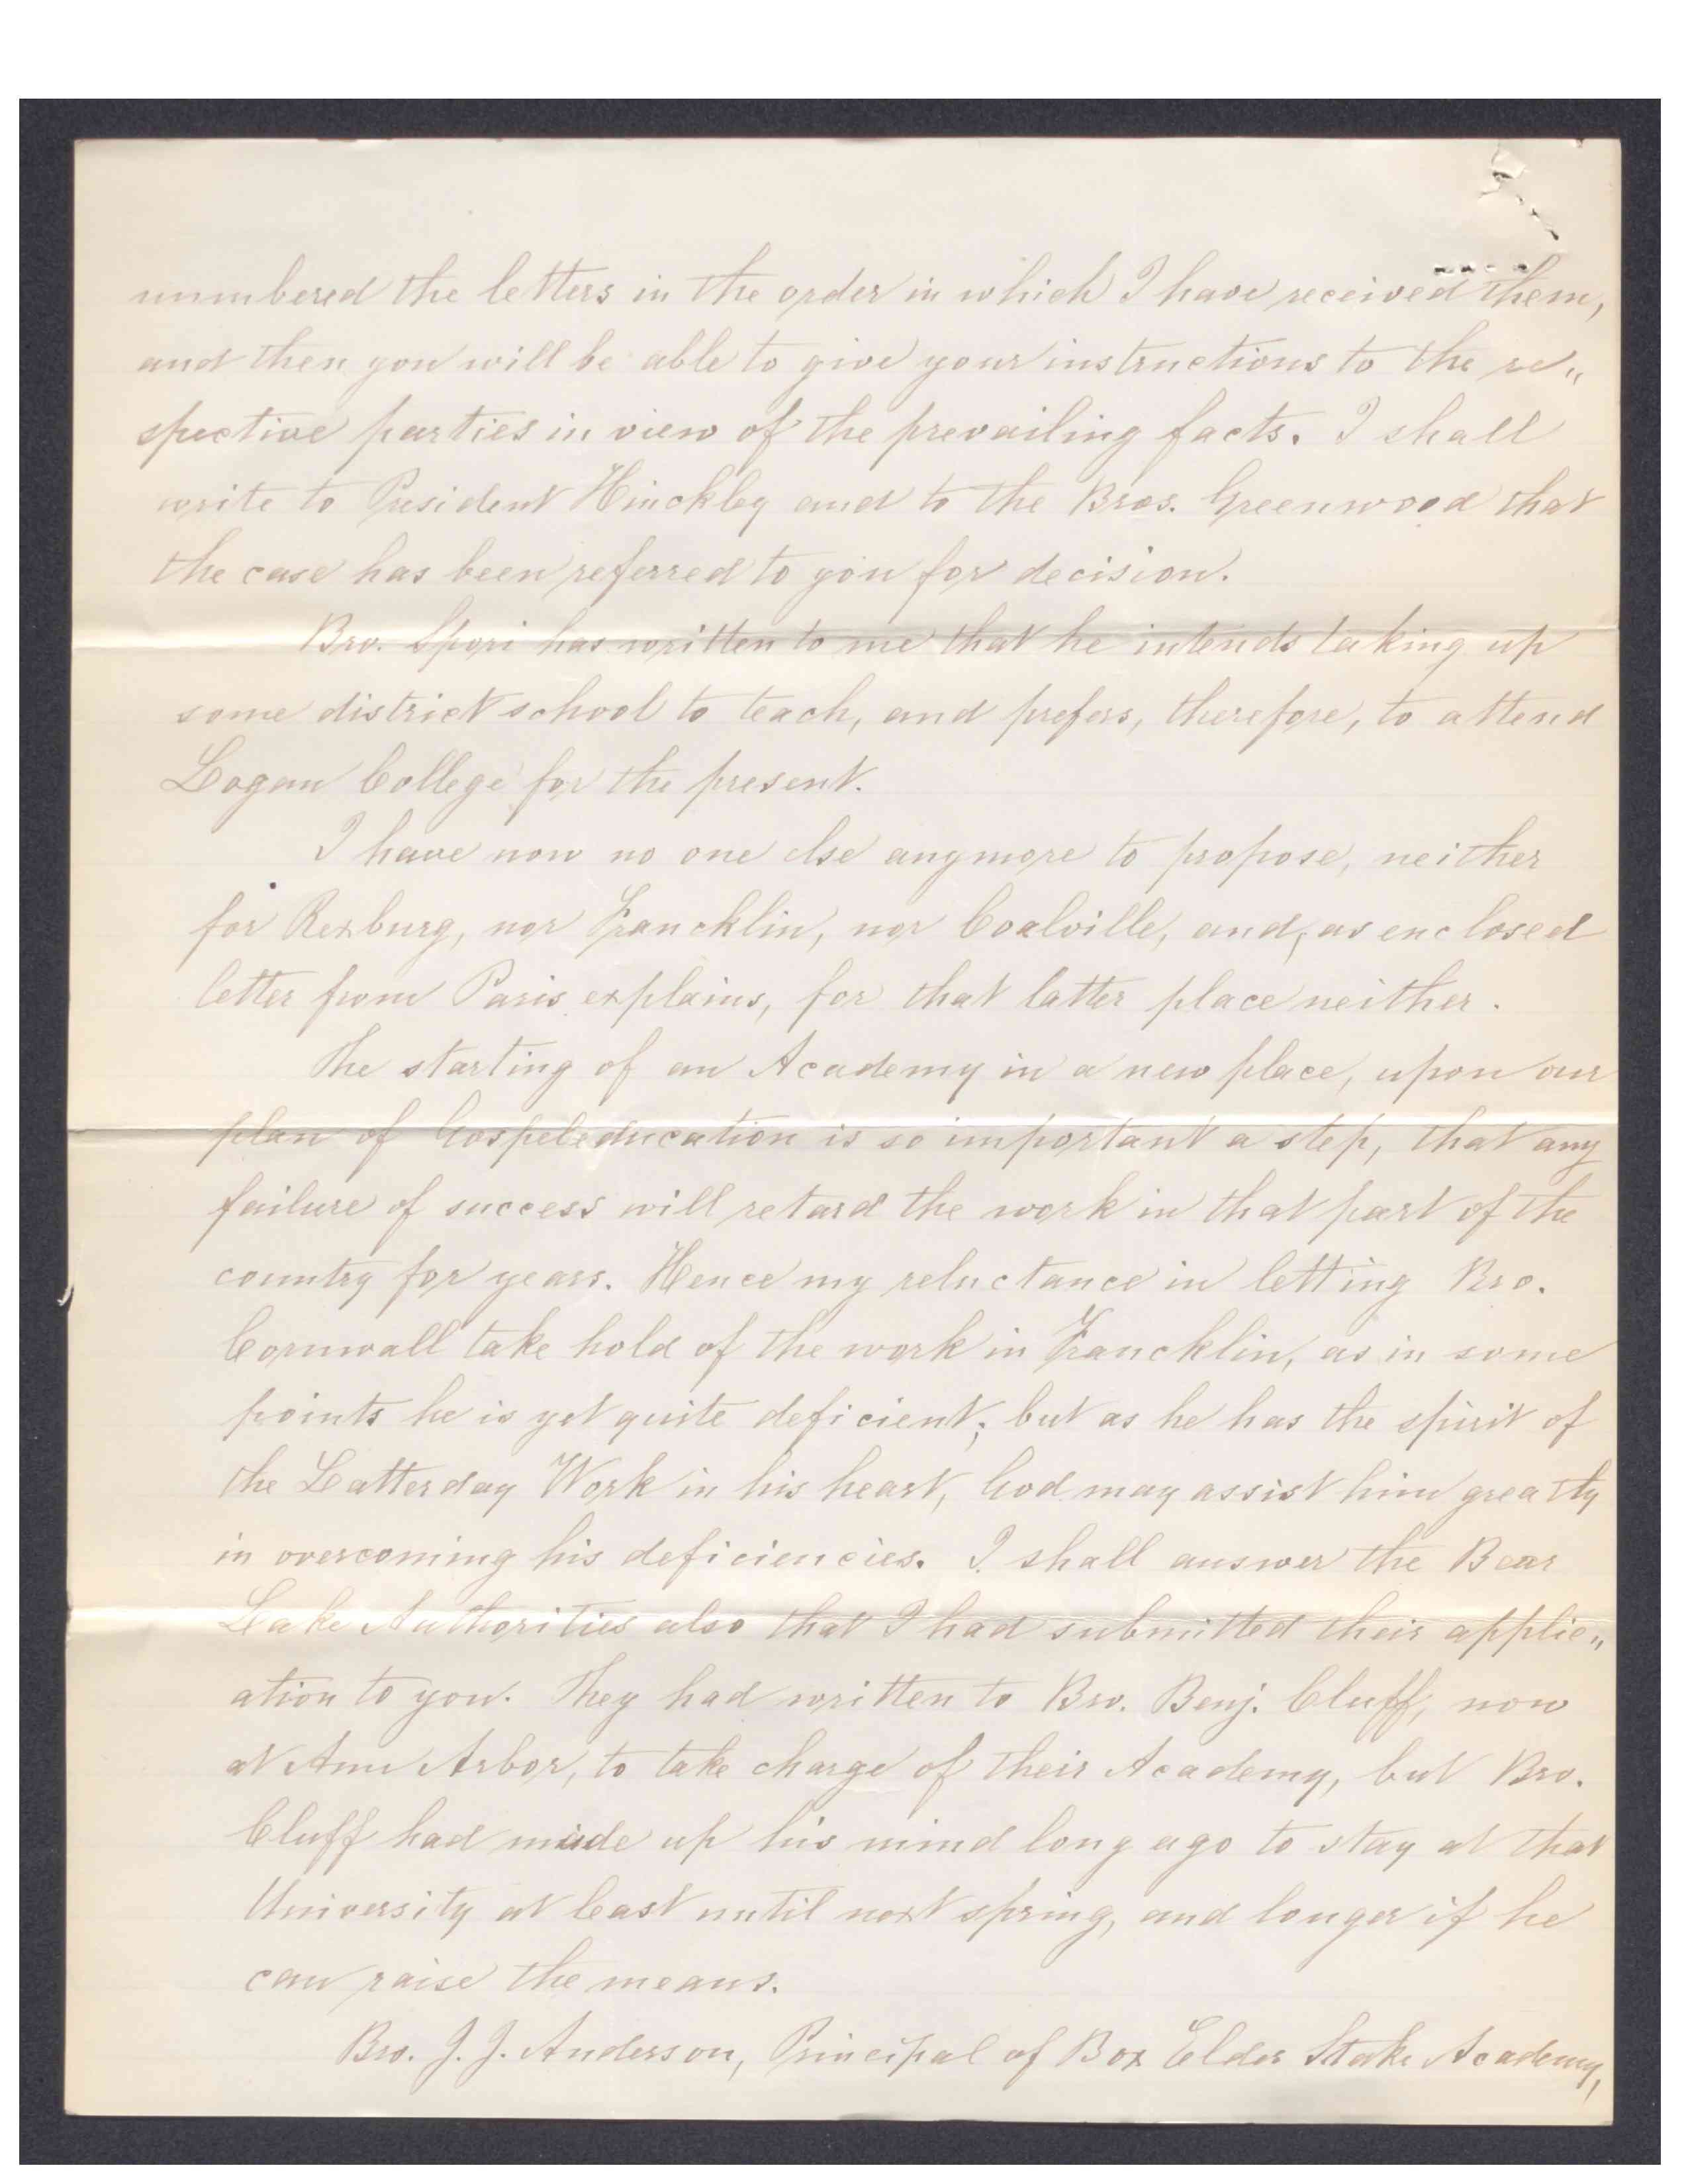 numbered the letters in the order in which I have received them,
and then you will be able to give your instructions to the re„
spective parties in view of the prevailing facts. I shall
write to President Hinckley and to the Bros. Greenwood that
the case has been referred to you for decision.
Bro. Spori has written to me that he intends taking up
some district school to teach, and prefers, therefore, to attend
Logan College for the present.
I have now no one else anymore to propose, neither
for Rexburg, nor Francklin, nor Coalville, and, as enclosed
letter from Paris explains, for that latter place neither.
The starting of an Academy in a new place, upon our
plan of Gospeleducation is so important a step, that any
failure of success will retard the work in that part of the
country for years. Hence my reluctance in letting Bro.
Cornwall take hold of the work in Francklin, as in some
points he is yet quite deficient; but as he has the spirit of
the Latterday Work in his heart, God may assist him greatly
in overcoming his deficiencies. I shall answer the Bear
Lake Authorities also that I had submitted their applic„
ation to you. They had written to Bro. Benj. Cluff, now
at Ann Arbor, to take charge of their Academy, but Bro.
Cluff had made up his mind long ago to stay at that
University at least until next spring, and longer if he
can raise the means.
Bro. J. J. Anderson, Principal of Box Elder Stake Academy,